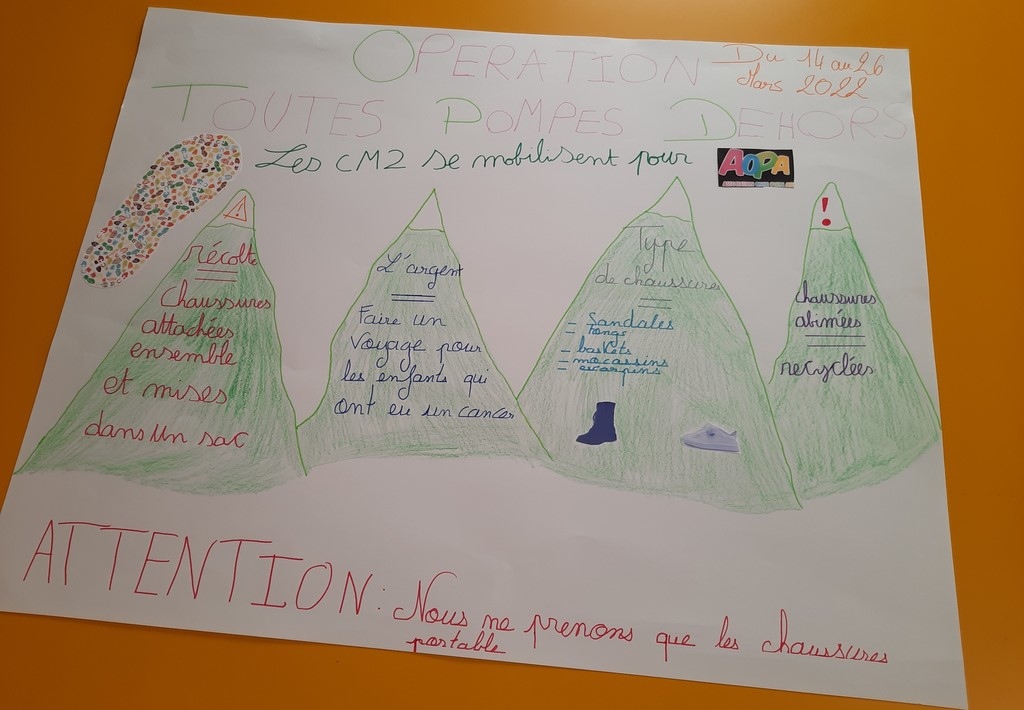 OPERATION
Du 14 au 26
Mars 2022
TOUTES POMPES DEHORS
Les CM2 se mobilisent pour
AOPA
récolte
Chaussures
attachées
ensemble
et mises
dans un sac
L'argent
Faire un
voyage pour
les enfants qui
ont eu un cancer
Type
de chaussures
- Sandales
- tongs
- baskets
- mocassins
- escarpins
!
chaussures
abimées
recyclées
ATTENTION: Nous ne prenons que les chaussures
portable